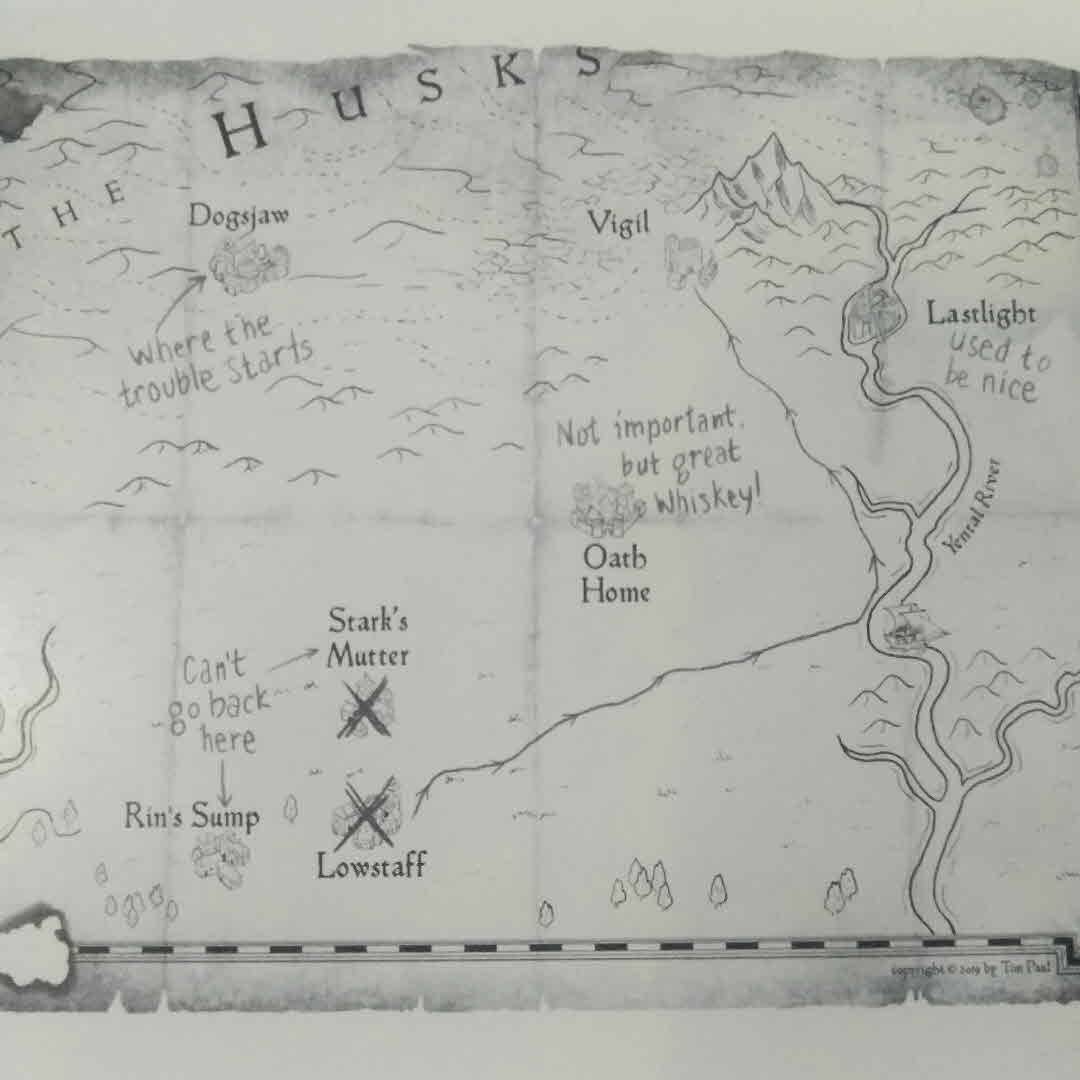 THE HUSKS
Dogsjaw
Vigil
Where the
trouble Starts
Lastlight
used to
be nice
Not important,
but great
Whiskey!
Oath
Home
Yental River
Stark's
Mutter
Can't
go back
here
Rin's Sump
Lowstaff
copyright © 2019 by Tim Paul